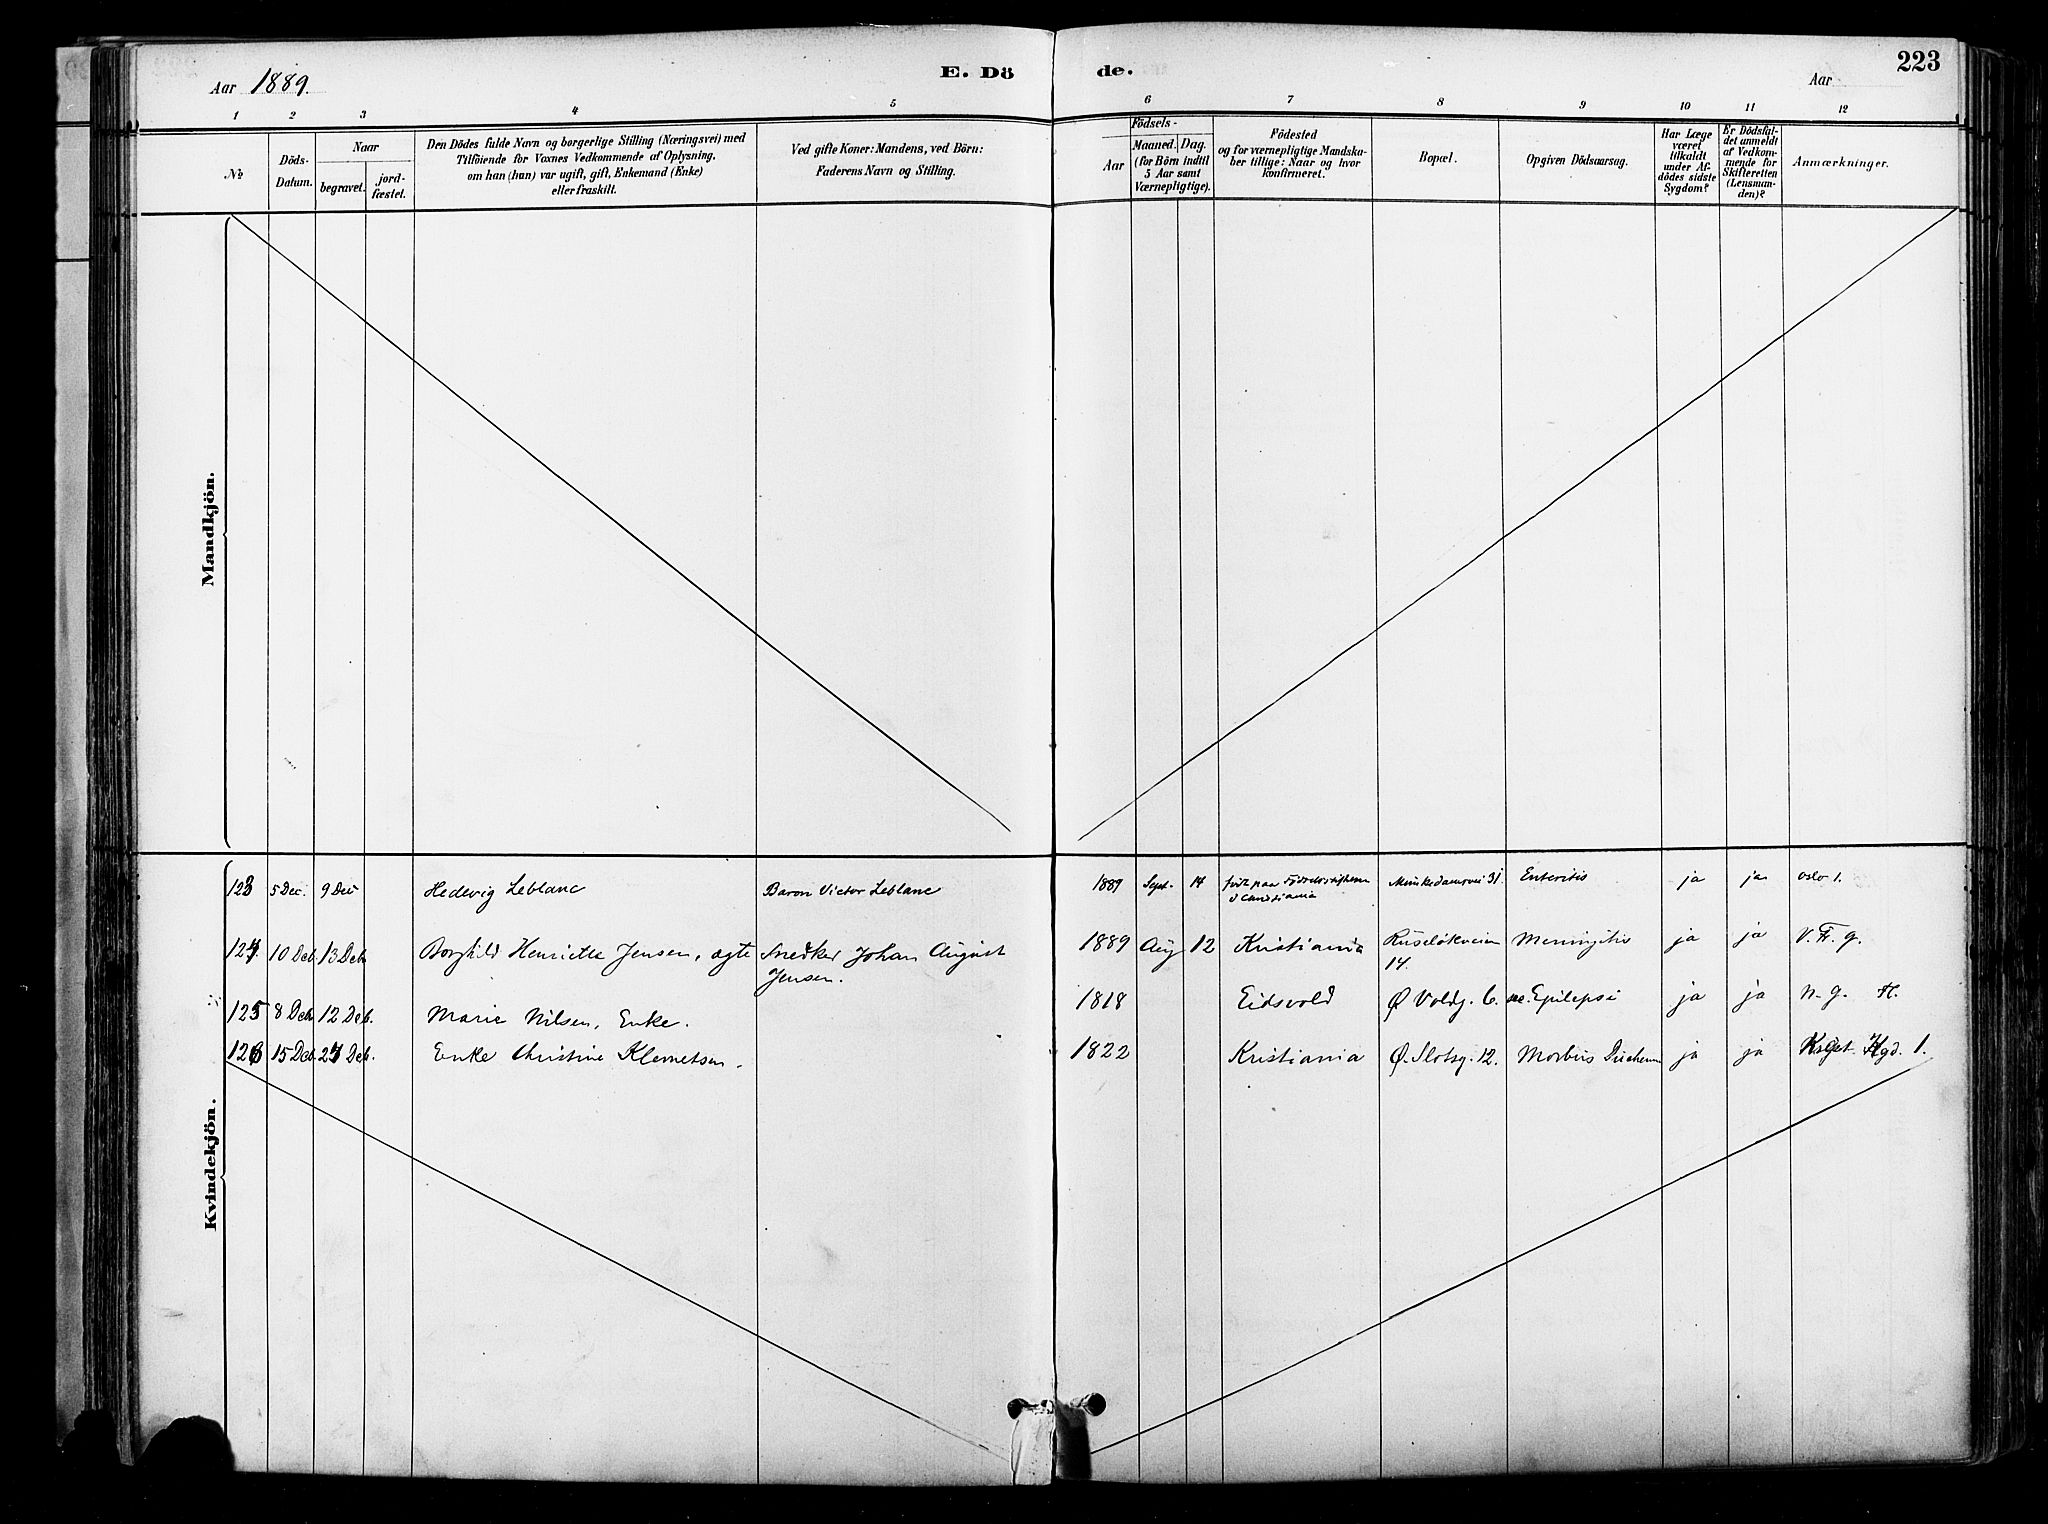 Aar 1889.
E. Dö
de.
Aar
223
1 2 3 4 5 6 7 8 9 10 11 12
No
Döds-
Datum.
Naar
begravet.
jord-
fæstet.
Den Dödes fulde Navn og borgerlige Stilling (Næringsvei) med
Tilföiende for Voxnes Vedkommende af Oplysning,
om han (hun) var ugift, gift, Enkemand (Enke)
eller fraskilt.
Ved gifte Koner: Mandens, ved Börn:
Faderens Navn og Stilling.
Födsels-
Aar
Maaned. Dag.
(for Börn indtil
5 Aar samt
Værnepligtige).
Födested
og for værnepligtige Mandska-
ber tillige: Naar og hvor
konfirmeret.
Bopæl.
Opgiven Dödsaarsag.
Har Læge
været
tilkaldt
under Af-
dödes sidste
Sygdom?
Er Dödsfal-
det anmeldt
af Vedkom-
mende for
Skifteretten
(Lensman-
den)?
Anmærkninger.
Mandkjön.
Kvindekjön.
123 5 Dec. 9 Dec Hedevig Leblanc Baron Victor Leblanc 1889 Sept. 14 født paa Fødselsstiftelsen Munkedamsvei 31. Enteritis ja ja Oslo 1.
124. 10 Deb. 13 Deb Borghild Henriette Jensen, ægte Snedker Johan August 1889 Aug 12 Kristiania Ruseløkveien Meningitis ja ja V. Fr. g.
Jensen. 14.
125 8 Deb 12 Deb. Marie Nilsen, Enke. 1818 Eidsvold Ø Voldg. 6. Epilepsi ja ja N. g. H.
126 15 Deb. 21 Deb. Enke Christine Klemetsen. 1822 Kristiania Ø. Slotsg. 12. Morbus ja ja Hgd. 1.